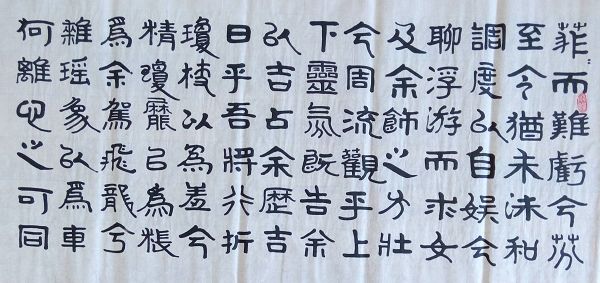 菲〻而難虧兮芬
至今猶未沬和
調度以自娛兮
聊浮游而求女
及余飾之方壯
兮周流觀乎上
下靈氛既告余
以吉占余歷吉
日乎吾將行折
瓊枝以為羞兮
精瓊爢以為粻
為余駕飛龍兮
雜瑤象以為車
何離心之可同